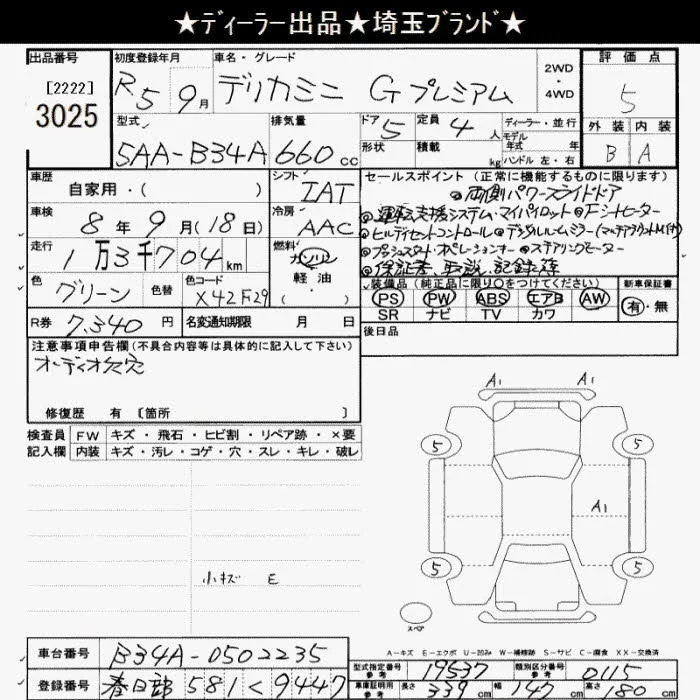 ★ディーラー出品★埼玉ブランド★
出品番号
[2222]
3025
初度登録年月
R5 9月
車名・グレード
デリカミニ Gプレミアム
2WD
・
4WD
評価点
5
外装 内装
B A
型式
5AA-B34A
排気量
660cc
ドア 5
形状
定員 4人
積載 kg
ディーラー・並行
モデル
年式 年
ハンドル 左・右
車歴
自家用・( )
車検
8年9月(18日)
走行
1万3千704km
色
グリーン
色替
色コード
X42F29
シフト
IAT
冷房
AAC
燃料
ガソリン
・
軽油
( )
セールスポイント(正常に機能するものに限ります)
◎両側パワースライドドア
◎運転支援システム・マイパイロット◎Fシートヒーター
◎ヒルディセットコントロール◎デジタルルームミラー(マルチアラウンドM付)
◎プッシュスタート・オペレーションキー◎ステアリングヒーター
◎保証書、取説、記録簿
装備品(純正品に限り○をつけてください)
PS PW ABS エアB AW
SR ナビ TV カワ
新車保証書
有・無
R券 7,340円
名変通知期限 月 日
後日品
注意事項申告欄(不具合内容等は具体的に記入して下さい)
オーディオ欠穴
修復歴 有 〔箇所 〕
検査員
記入欄
FW キズ・飛石・ヒビ割・リペア跡・×要
内装 キズ・汚レ・コゲ・穴・スレ・キレ・破レ
小キズ E
A1 A1
5 5
A1
5 5
スペア
A-キズ E-エクボ U-凹み W-補修跡 S-サビ C-腐食 XX-交換済
車台番号 B34A-0502235
登録番号 春日部 581 く 9447
型式指定番号
参考
19537
類別区分番号
参考
0115
車庫証明用
参考
長さ 339cm 幅 147cm 高さ 180cm